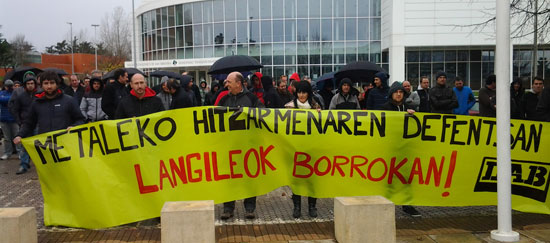 METALEKO HITZARMENAREN DEFENTSAN
LANGILEOK BORROKAN!
LAB